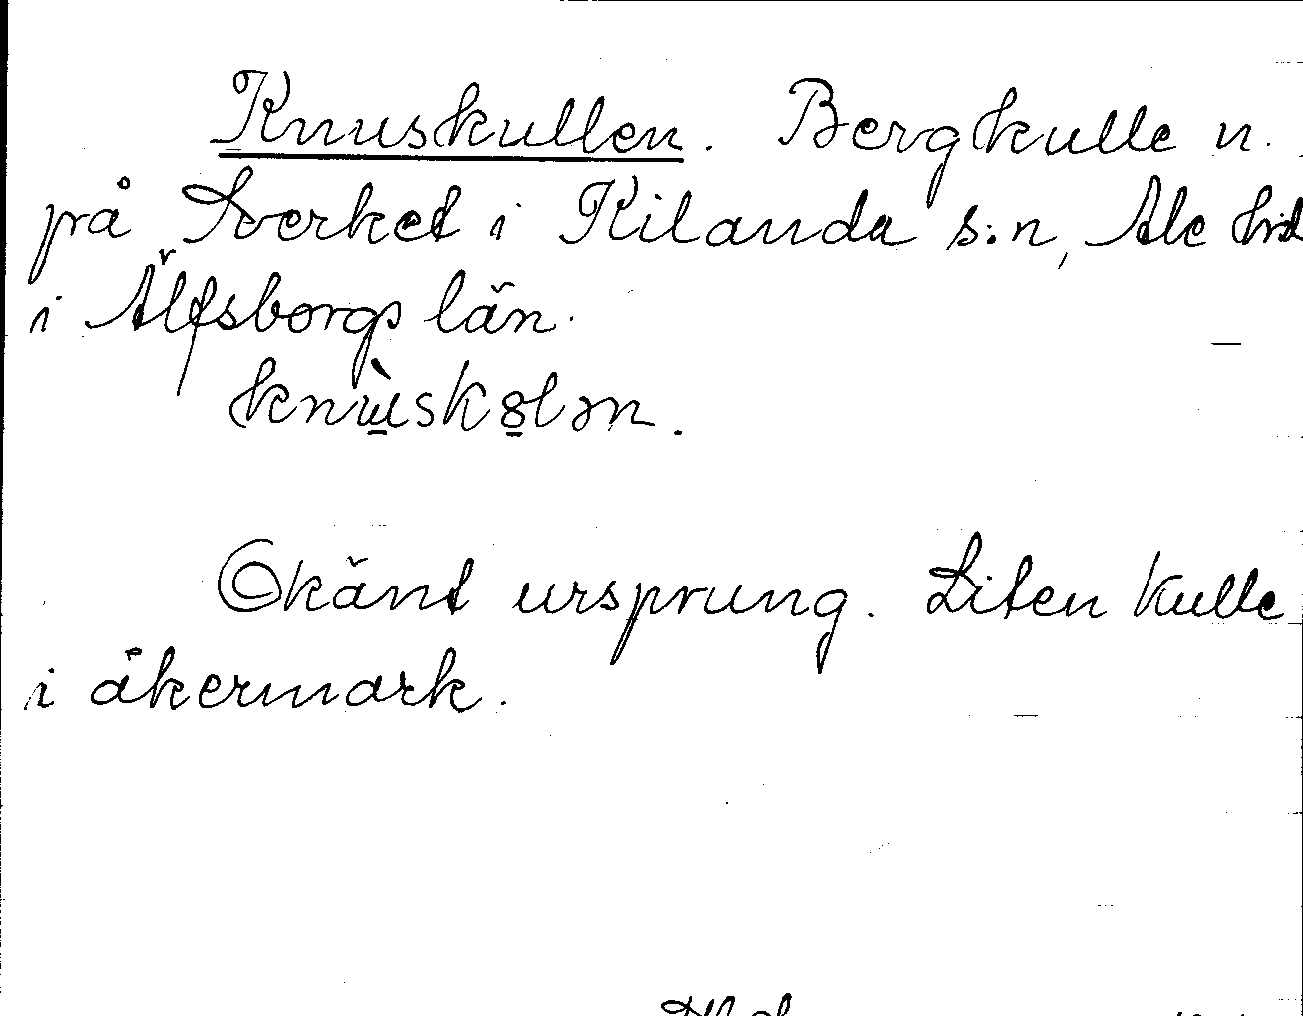 Knuskullen. Bergkulle n.
på Sverket i Kilanda s:n, Ale hrd
i Älfsborgs län.
knùskɵlən.
Okänt ursprung. Liten kulle
i åkermark.